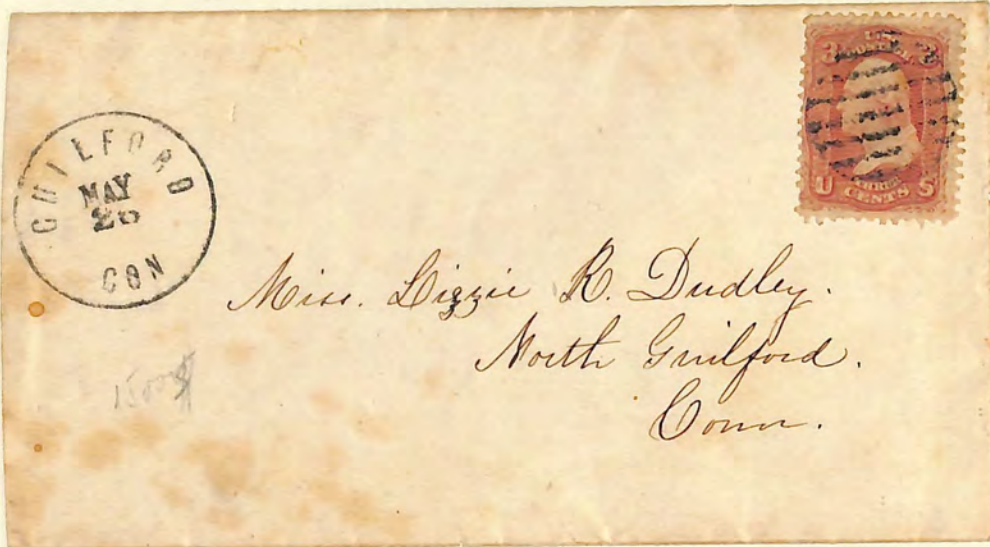 GUILFORD
MAY
CON
3 3
U THREE S
CENTS
Miss. Lizzie R. Dudley.
North Guilford.
Conn.